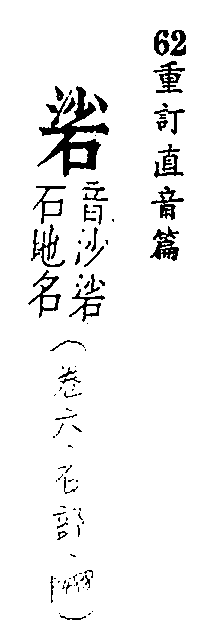 62重訂直音篇
硰
音沙硰
石地名
（卷六、石部、）